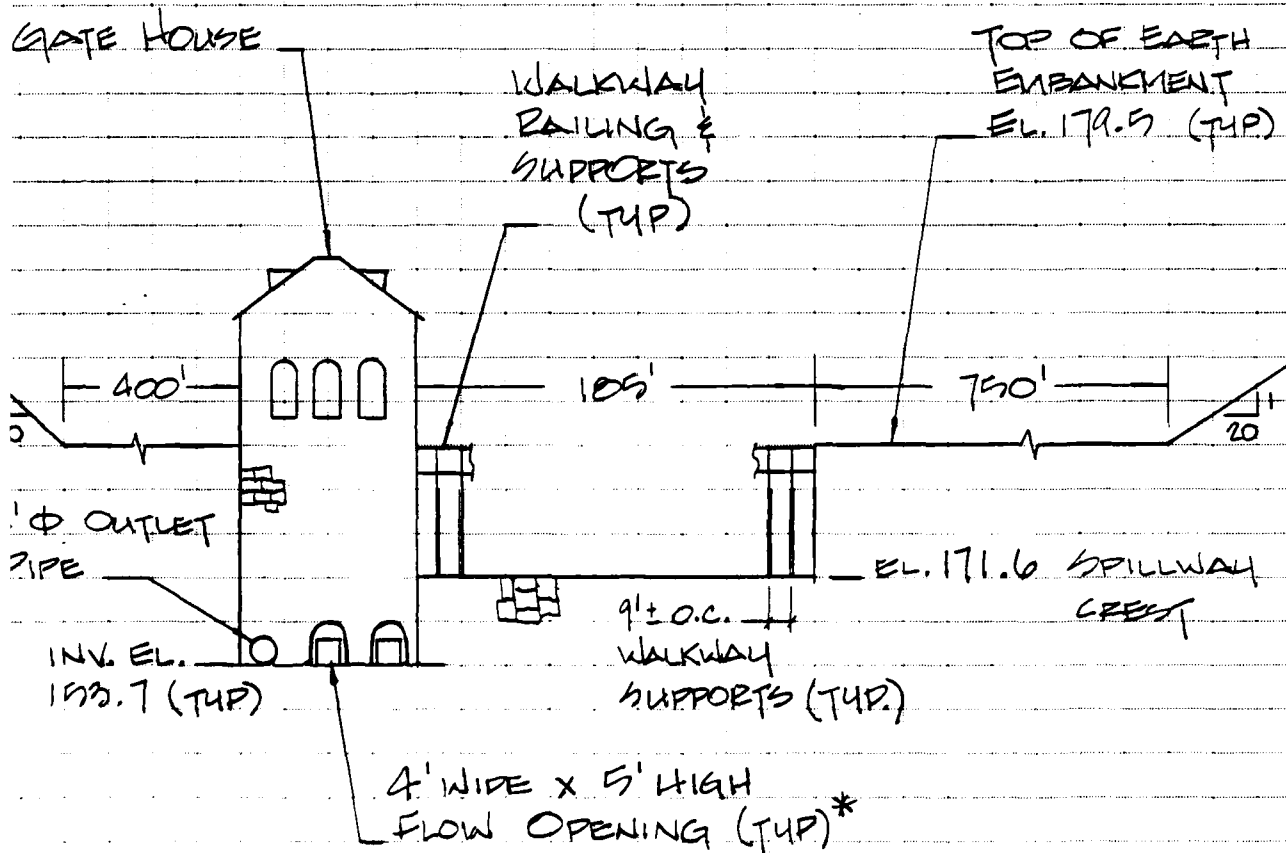 GATE HOUSE
WALKWAY
RAILING &
SUPPORTS
(TYP)
TOP OF EARTH
EMBANKMENT
EL. 179.5 (TYP)
400'
185'
750'
1
20
' Φ OUTLET
PIPE
INV. EL.
153.7 (TYP)
EL. 171.6 SPILLWAY
CREST
9'± O.C.
WALKWAY
SUPPORTS (TYP.)
4' WIDE X 5' HIGH
FLOW OPENING (TYP)*